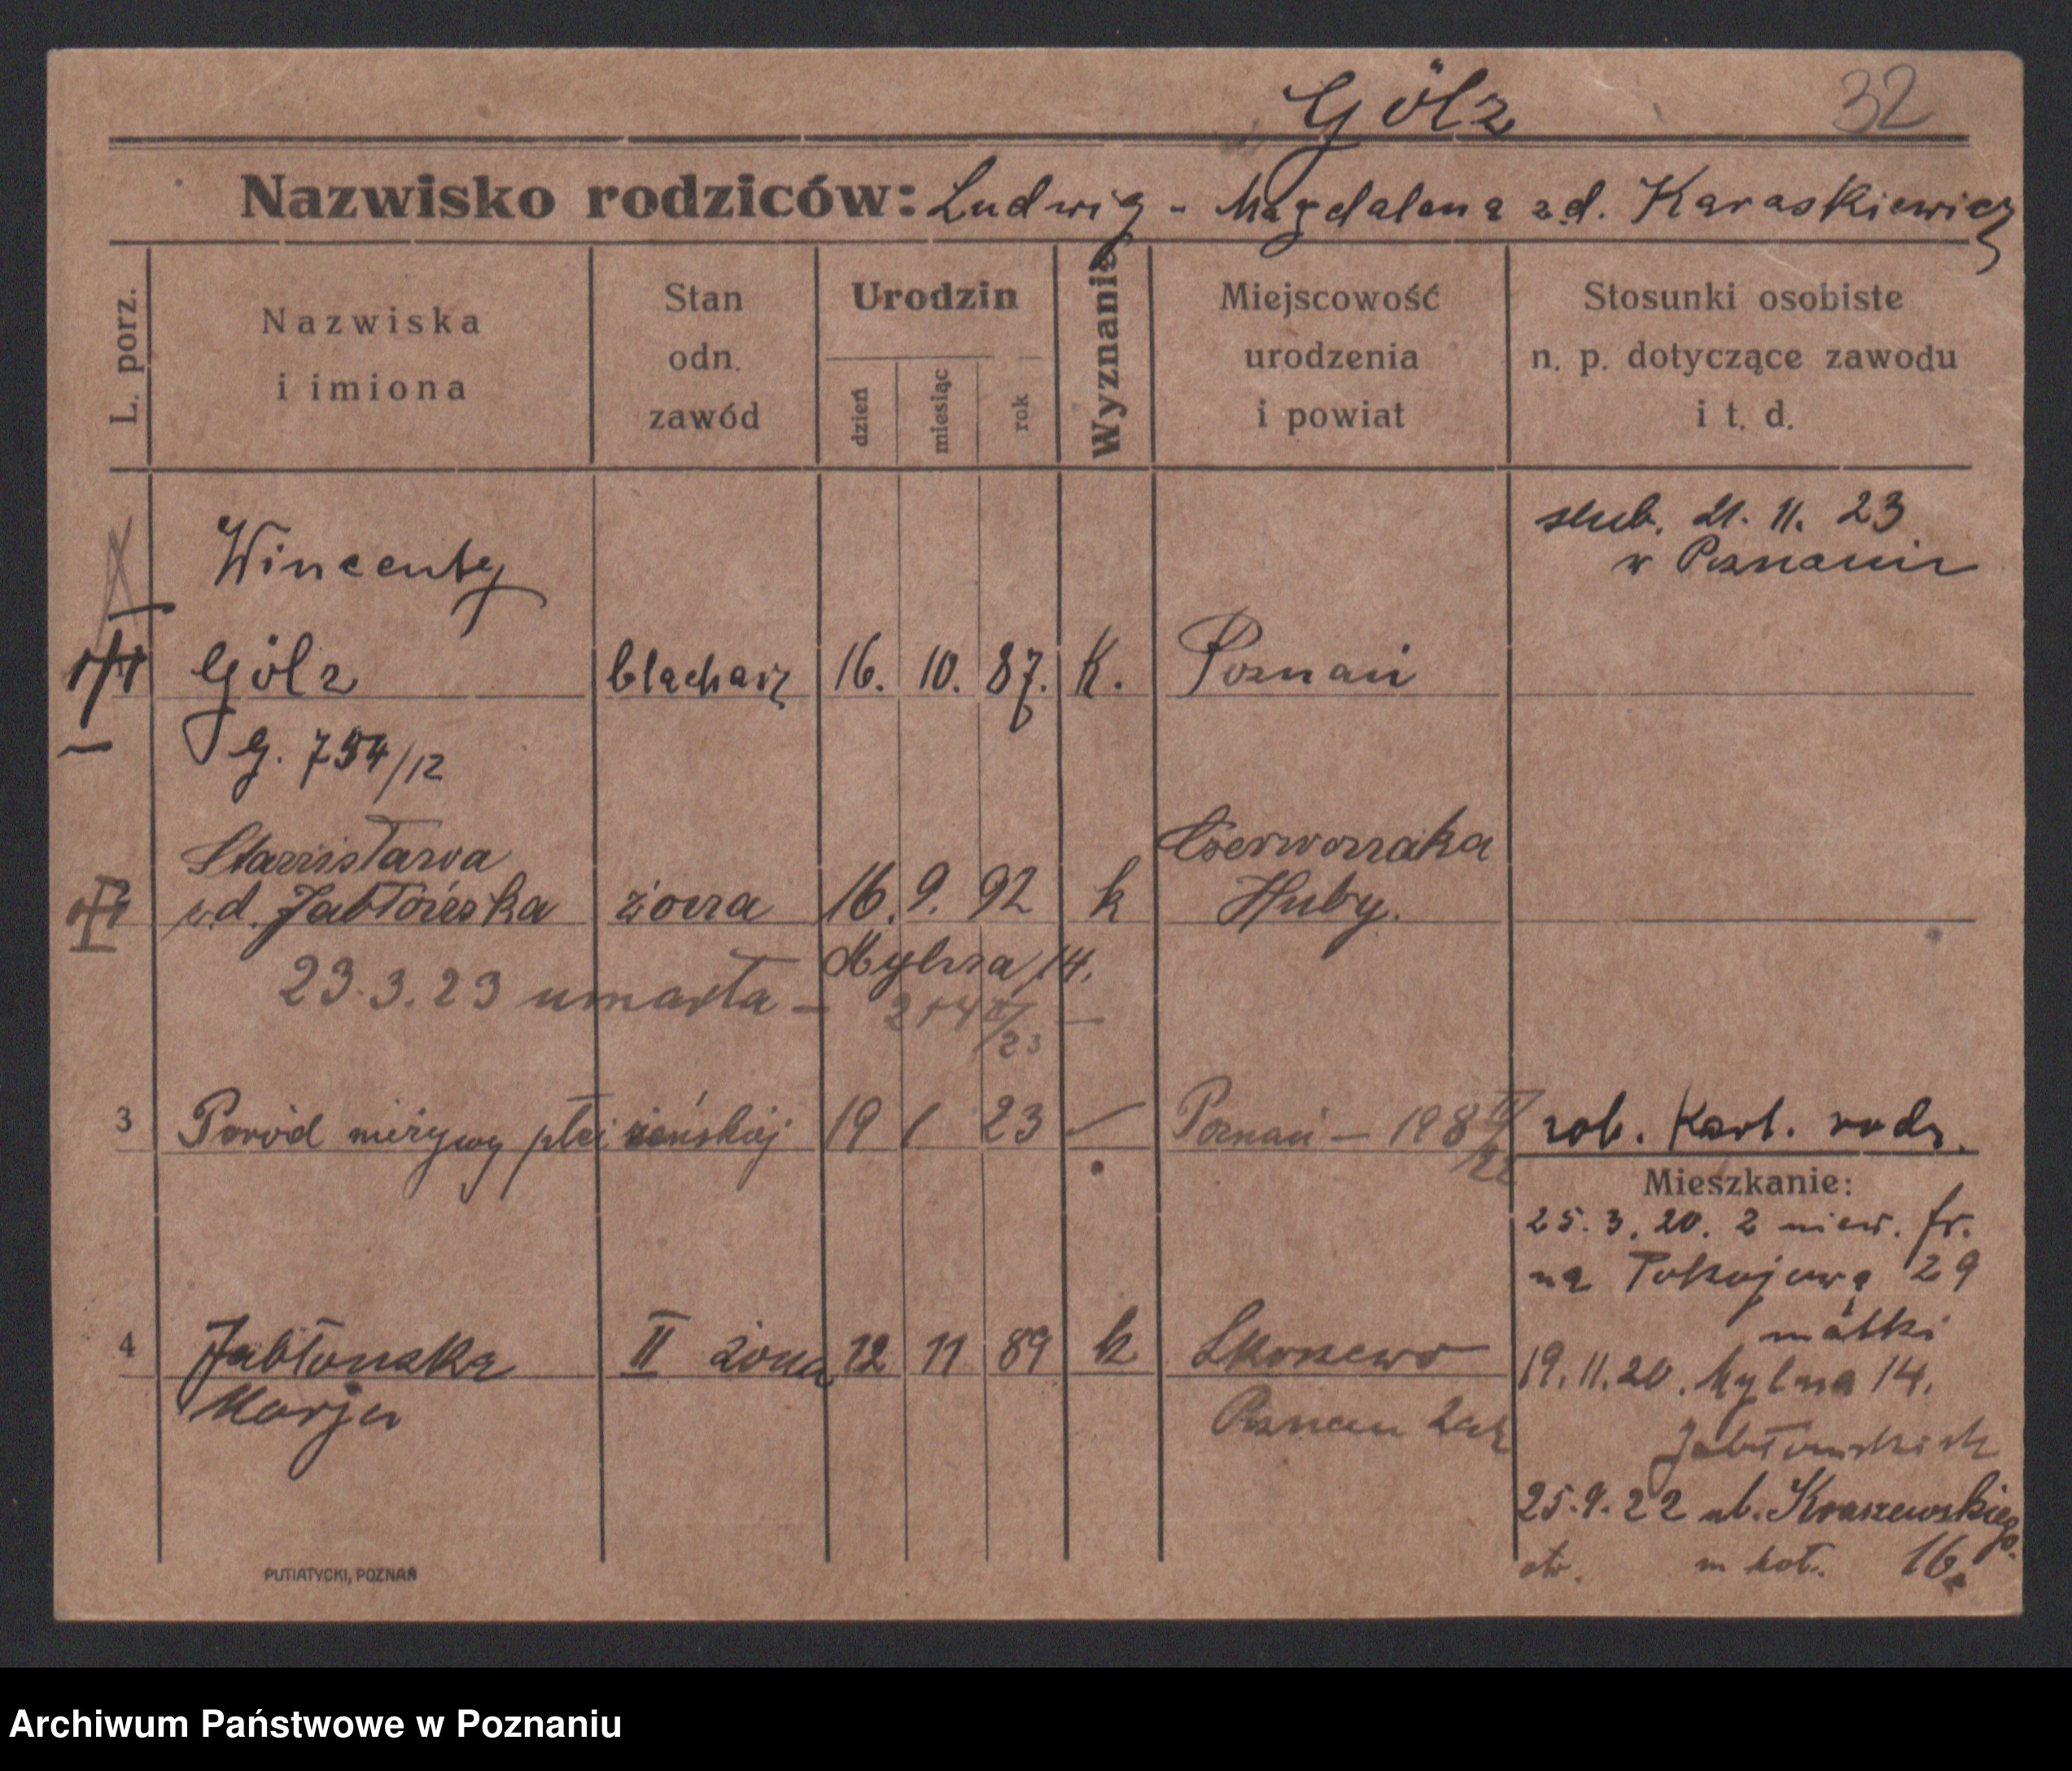 Gölz 32
Nazwisko rodziców: Ludwig - Magdalena zd. Karaskiewicz
L. porz.
Nazwiska
i imiona
Stan
odn.
zawód
Urodzin
dzień
miesiąc
rok
Wyznanie
Miejscowość
urodzenia
i powiat
Stosunki osobiste
n. p. dotyczące zawodu
i t. d.
ślub. 21. 11. 23
w Poznaniu
Wincenty
Gölz blacharz 16. 10. 87. K. Poznań
G. 754/12
Stanisława
zd. Jabłońska żona 16. 9. 92 k Czerwonaka
Huby.
Mylna 14.
23.3.23 umarła
3 Poród nieżywy płci żeńskiej 19 1 23 Poznań – 198 zob. Kart. rodz.
Mieszkanie:
25. 3. 20. 2 niew. fr.
na Pokojową 29
matki
4 Jabłonska II żona 12 11 89 k
Marja
19. 11. 20. Mylna 14.
Jabłonskich
25.9.22 ul. Kraszewskiego
16.
PUTIATYCKI, POZNAŃ
Archiwum Państwowe w Poznaniu